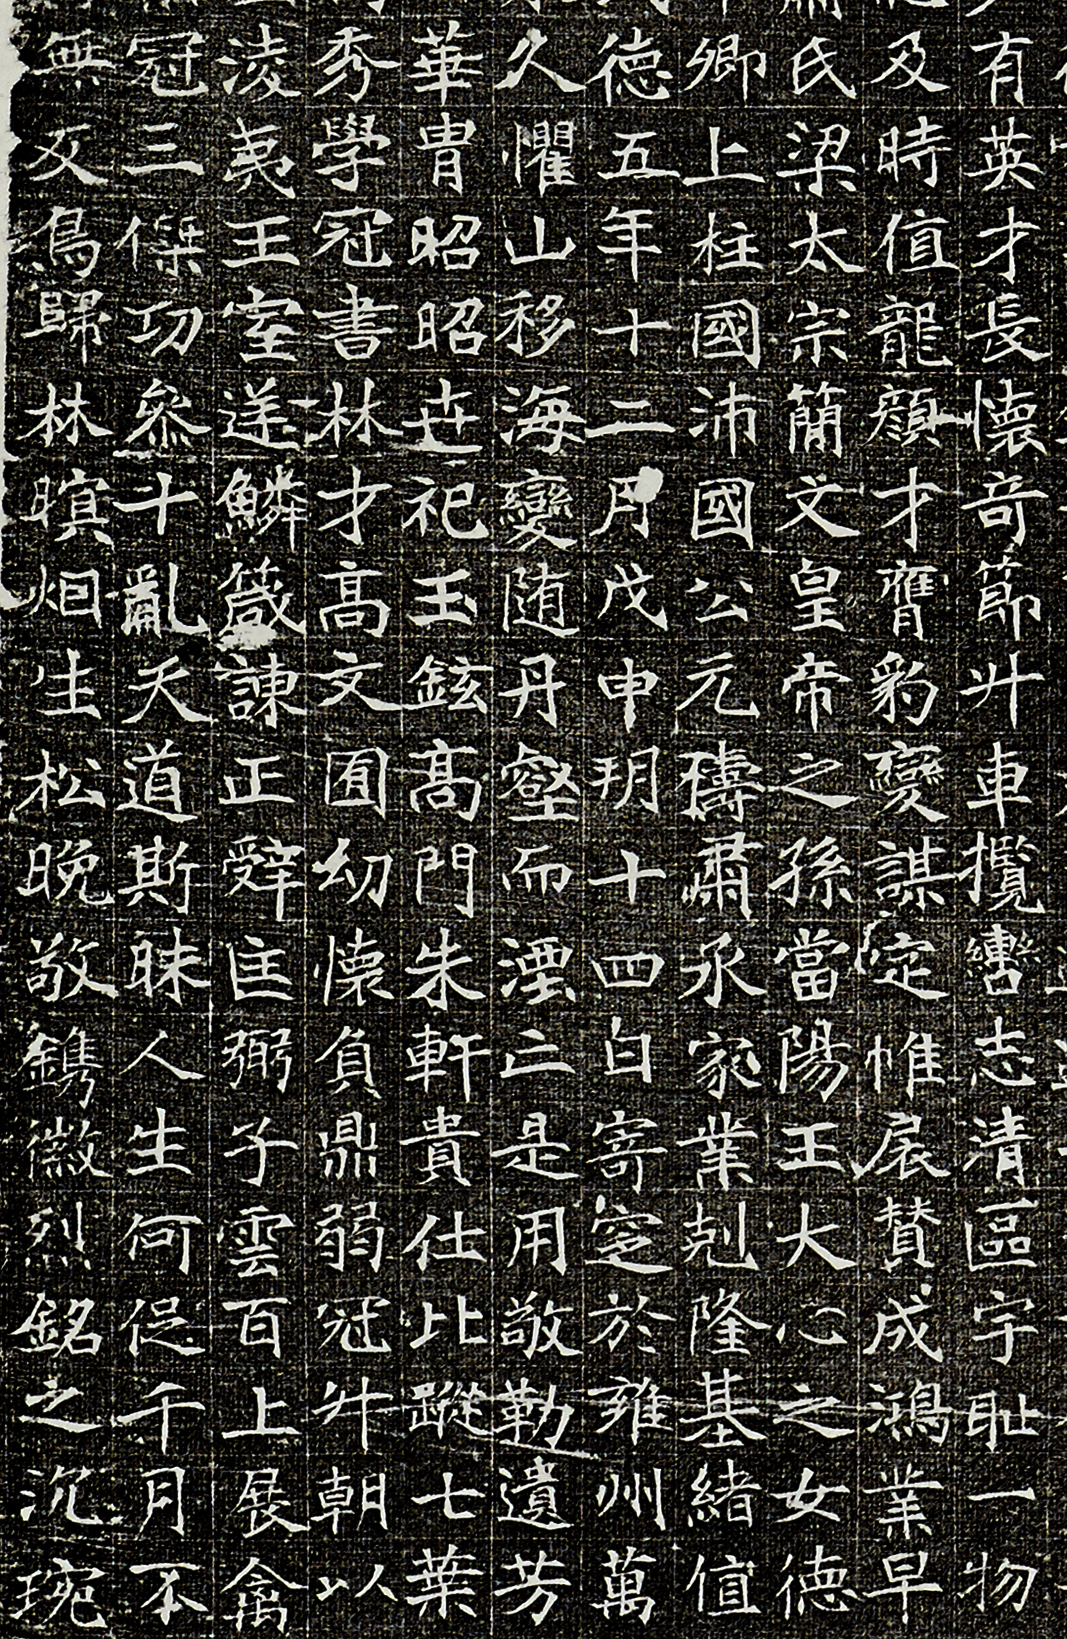 有英才長懷奇節升車攬轡志清區宇恥一物
及時値龍顏才膺豹變謀定帷扆賛成鴻業早
氏梁太宗簡文皇帝之孫當陽王大心之女德
卿上柱國沛國公元礻壽肅承家業剋隆基緒値
德五年十二月戊申玥十四日寄窆於雍州萬
久懼山移海變随丹壑而湮亡是用敬勒遺芳
華胄昭昭丗祀玉鉉髙門朱軒貴仕比蹤七葉
秀學冠書林才髙文囿幼懷負鼎弱冠升朝以
淩夷王室送鱗箴諫正辤匡弼子雲百上展禽
冠三傑功叅十亂天道斯昧人生何促千月不
無反鳥歸林暝烟生松晚敬鐫徽烈銘之沉琬